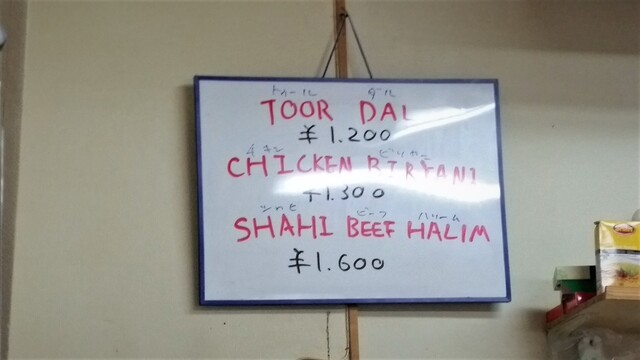 トゥール ダル
TOOR DAL
¥1.200
チキン ビリヤニ
CHICKEN BIRYANI
¥1.300
シャヒ ビーフ ハリーム
SHAHI BEEF HALIM
¥1.600